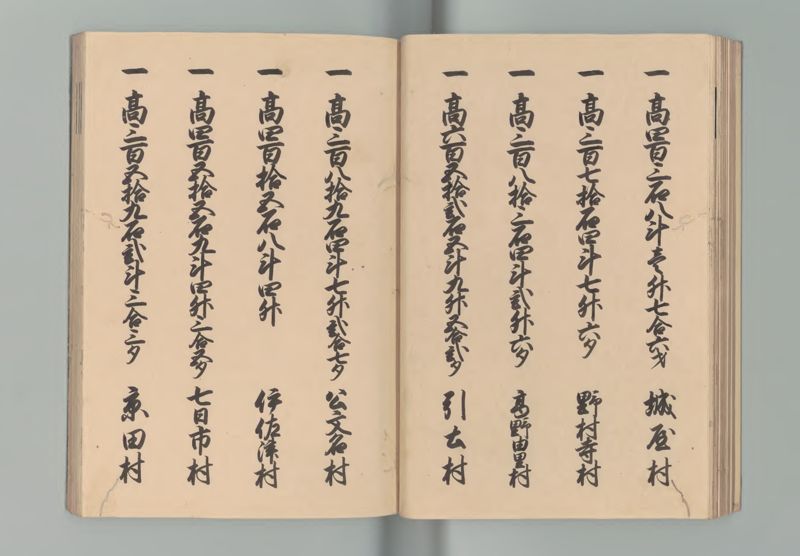 一 高四百三石八斗壱升七合六才 城屋村
一 高三百七拾石四斗七升六夕 野村寺村
一 高三百八拾三石四斗弐升六夕 高野由里村
一 高六百五拾弐石五斗九升五合弐夕 引土村
一 高三百八拾九石四斗七升弐合七夕 公文名村
一 高四百拾五石八斗四升 伊佐津村
一 高四百五拾五石九斗四升三合五夕 七日市村
一 高三百五拾九石弐斗三合三夕 京田村